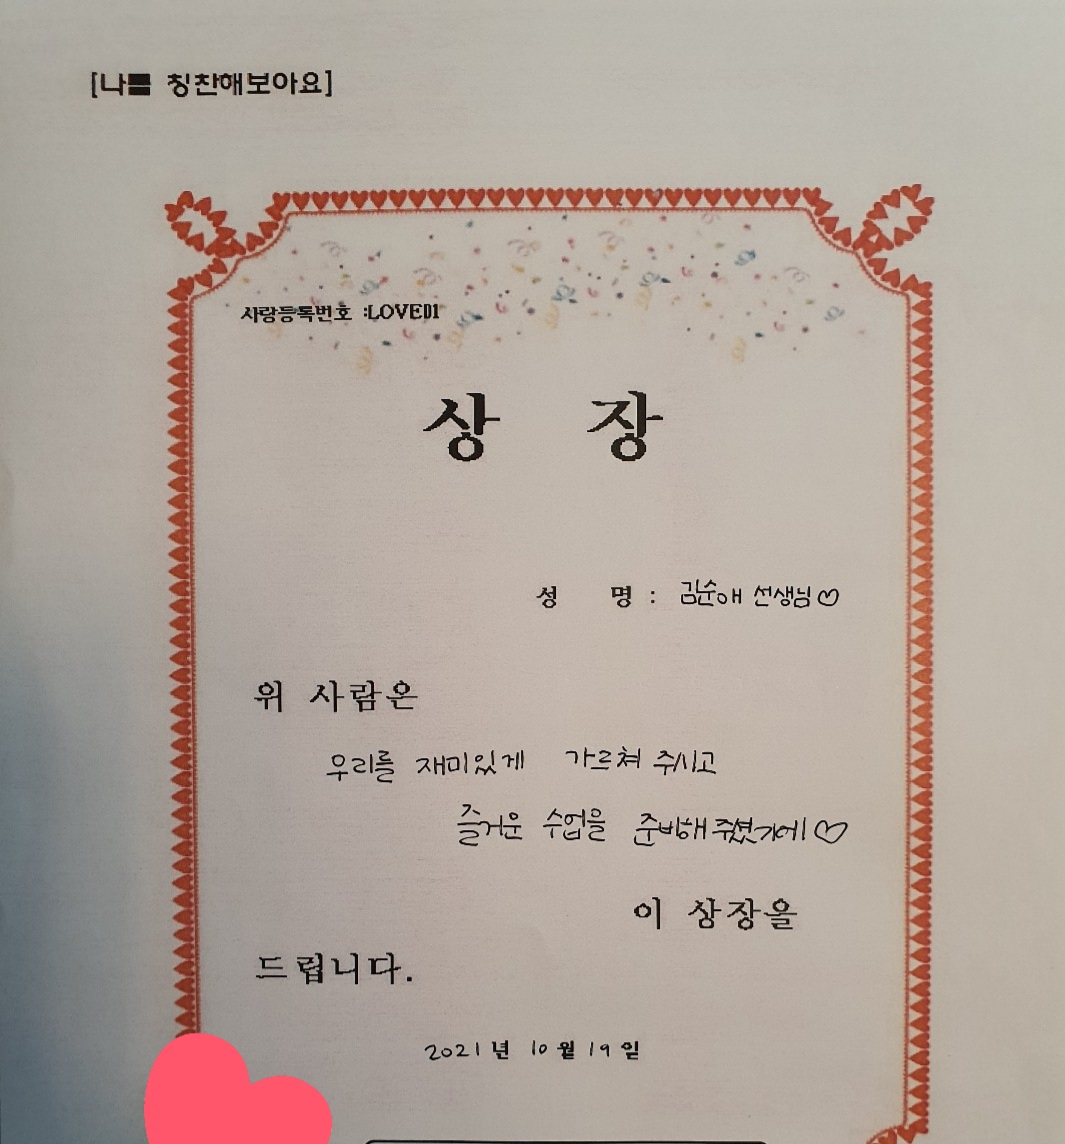 [나를 칭찬해보아요]
사랑등록번호 :LOVE01
상 장
성 명 : 김순애 선생님♡
위 사람은
우리를 재미있게 가르쳐 주시고
즐거운 수업을 준비해 주셨기에♡
이 상장을
드립니다.
2021년 10월 19일